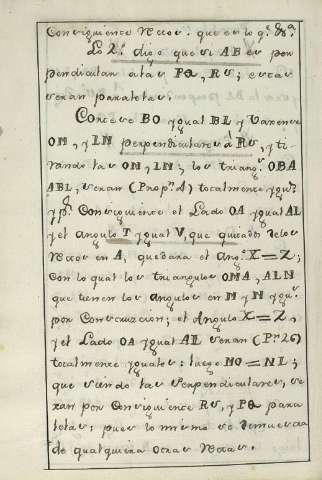 Consiguiente rectos. que es lo q.e &a
Lo 2.o digo que si AB es per
pendicular a las PQ, RS; estas
seran paralelas.
Cortese BO ygual BL y tirense
OM, y LN perpendiculares â RS, y ti
rando las OM, LN; los triang.s OBA
ABL, seran (Prop.n 4) totalmente yg.s
y p.r Consiguiente el Lado OA ygual AL
y el angulo T ygual V, que quitados delos
rectos en A, quedara el Ang.o X=Z;
con lo qual los triangulos OMA, ALN
que tienen los angulos en M y N yg.s
por Construccion; el Angulo X=Z,
y el Lado OA ygual AL seran (P.n 26)
totalmente yguales: luego MO=NL;
que siendo las perpendiculares, se
ran por Consiguiente RS, y PQ para
lelas; pues lo mismo se demuestra
de qualquiera otras rectas.